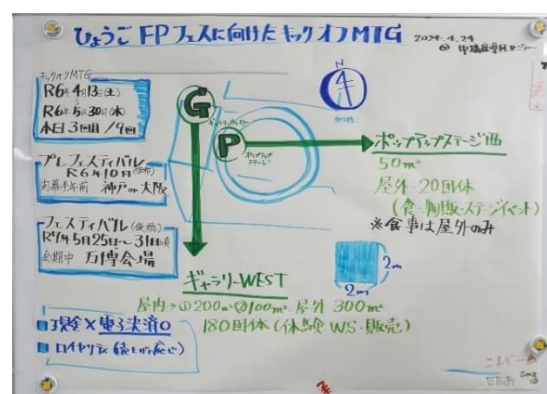 ひょうごFPフェスに向けたキックオフMTG
2024.4.24
キックオフMTG
R6年4月13日(土)
R6年5月30日(木)
本日3回目/9回
プレフェスティバル
R6年10月(仮称)
開幕半年前 神戸or大阪
フェスティバル(仮称)
R7年5月25日~31日
会期中 万博会場
G
P
ポップアップステージ
ポップアップステージ西
50㎡
屋外 20団体
(食・物販・ステージイベント)
※食事は屋外のみ
2m
2m
ギャラリーWEST
屋内→①200㎡②100㎡ 屋外 300㎡
180団体(体験WS・販売)
現金×電子決済○
ロイヤリティ